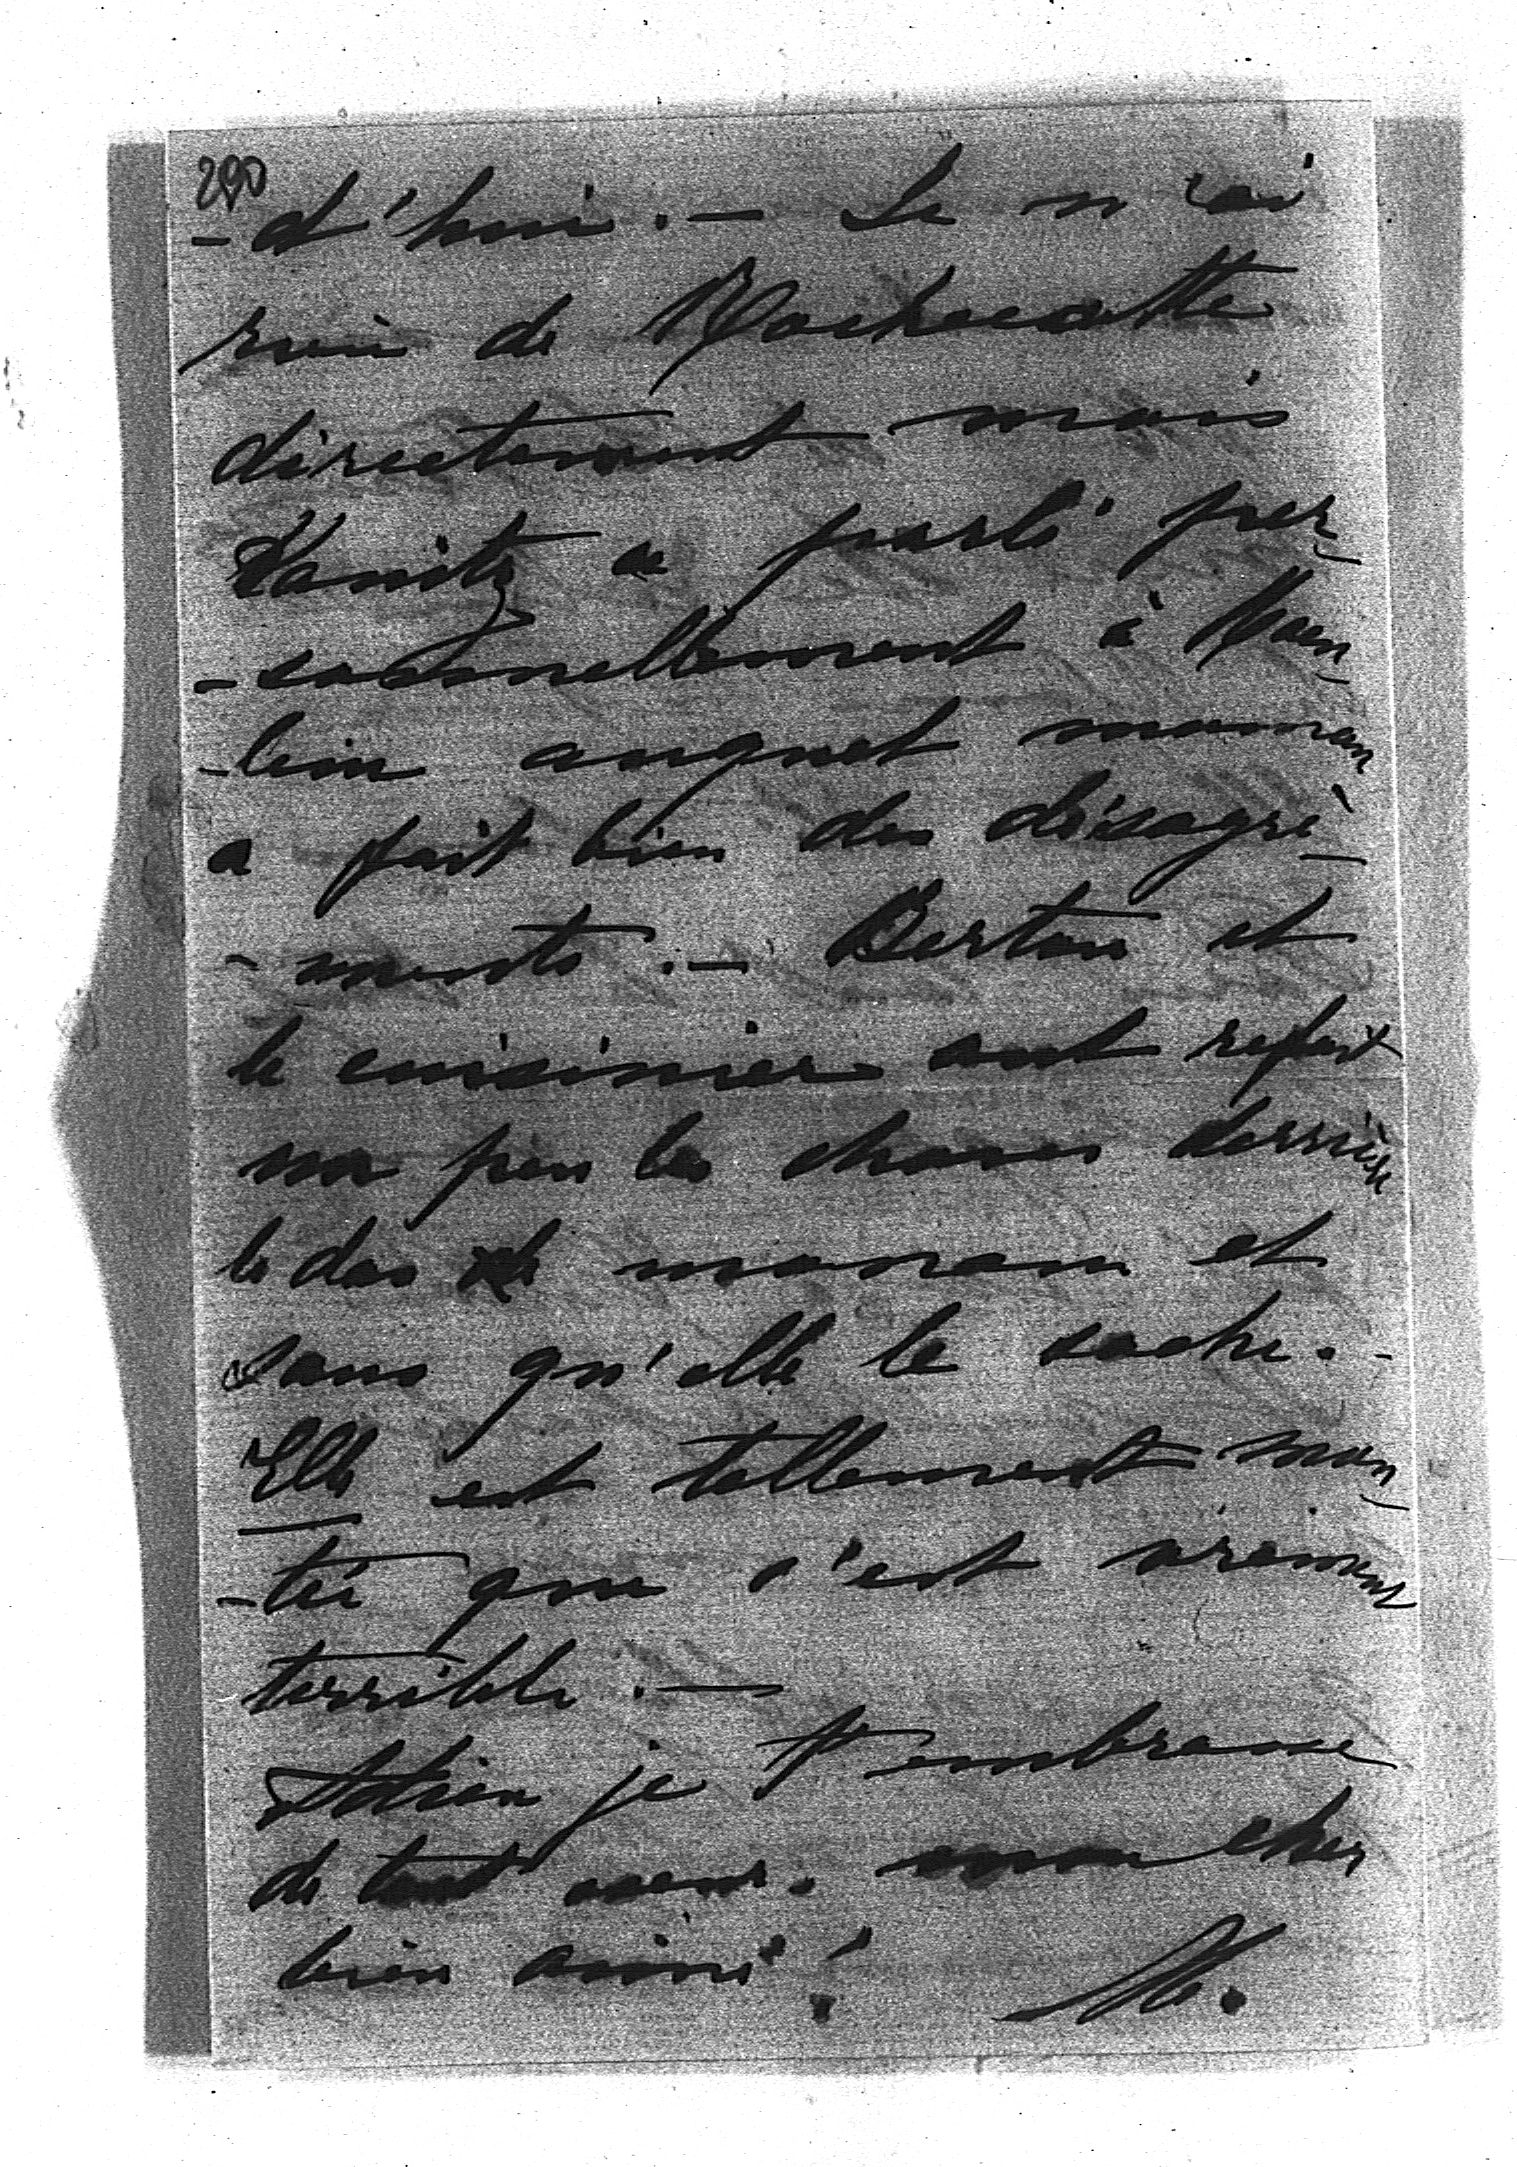 290
- d'hui. — Je n'ai
rien de Rochecotte
directement mais
Kanitz a parlé per-
- sonnellement à Moen-
- lin auquel maman
a fait bien des désagré-
- ments. — Berton et
le cuisinier ont refait
un peu les choses derrière
le dos de maman et
sans qu'elle le sache. -
Elle est tellement mon-
- tée que c'est vraiment
terrible. —
Adieu je t'embrasse
de tout coeur. mon cher
bien aimé! M.